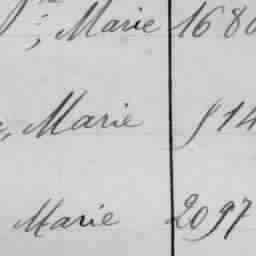 Marie 1680
Marie 914
Marie 2097